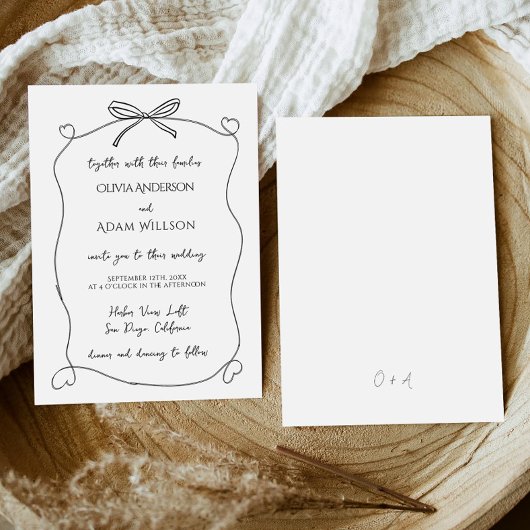 together with their families
OLIVIA ANDERSON
and
ADAM WILLSON
invite you to their wedding
SEPTEMBER 12TH, 20XX
AT 4 O'CLOCK IN THE AFTERNOON
Harbor View Loft
San Diego, California
dinner and dancing to follow
O + A